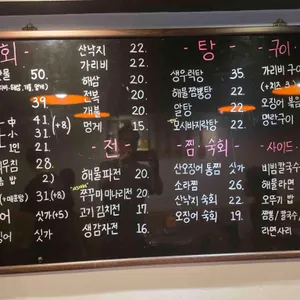 회 -
50.
39
中 41. (+8)
小 31.
1인 21.
28.
2)
31(+8)
싯가(+5)
싯가
산낙지 22.
가리비 22.
해삼 20.
전복 20.
개불 20.
멍게 15.
- 전 -
해물파전 20.
쭈꾸미 미나리전 20.
고기 김치전 17.
생감자전 16.
- 탕 -
생우럭탕 35.
해물짬뽕탕 22.
알탕 22.
모시바지락탕 22.
- 찜. 숙회 -
산오징어 통찜 싯가
소라찜 26.
산낙지 숙회 22.
오징어 숙회 19.
- 구이
가리비 구이
오징어 볶음
명란구이
- 사이드
비빔칼국수
해물라면
오뚜기 밥
짬뽕 / 칼국수
라면사리